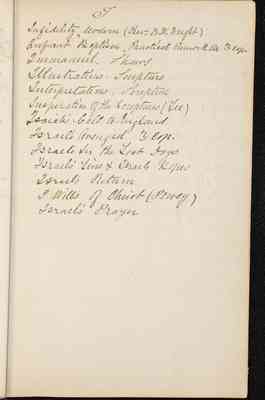 I
Infidelity, Modern (Rev. B. W. Wright)
Infant Baptism, Practical Remarks on 3 cop.
Immanuel. Shaws
Illustrations. Scripture
Interpretations, Scripture
Inspiration of the Scripture (Lee)
Isaiahs Call to England
Israel Avenged. 3 cop.
Israel in the Last Days
Israels Sins & Israels Hopes
Israels Return
I Wills of Christ (Power)
Israels Prayer